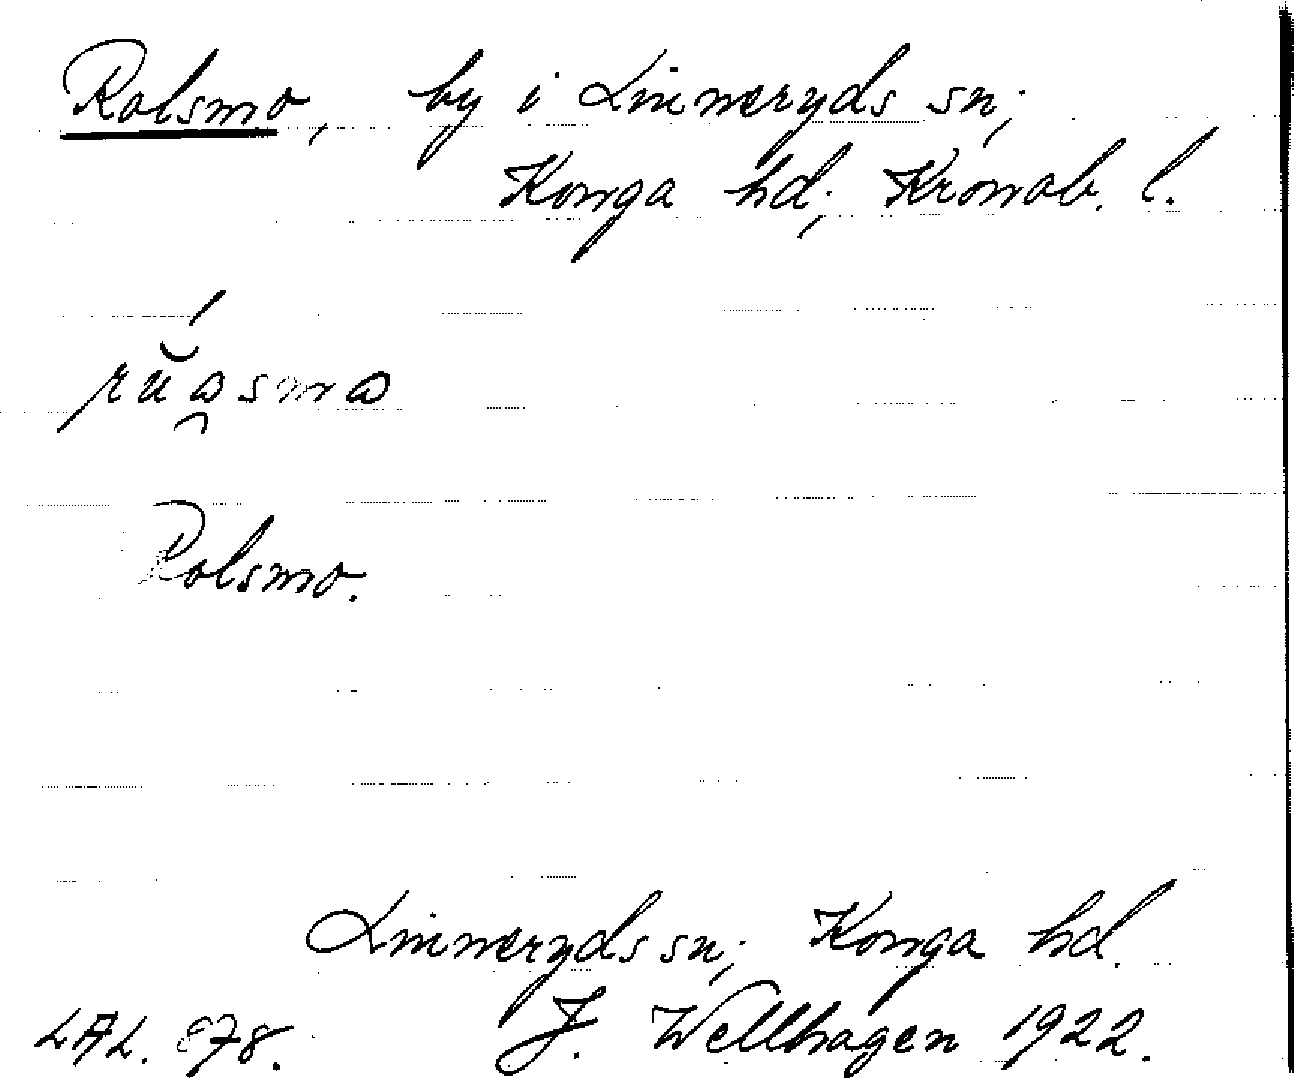 Rolsmo, by i Linneryds sn;
Konga hd; Kronob. l.
Rolsmo.
Linneryds sn; Konga hd.
LAL. 878. J. Wellhagen 1922.